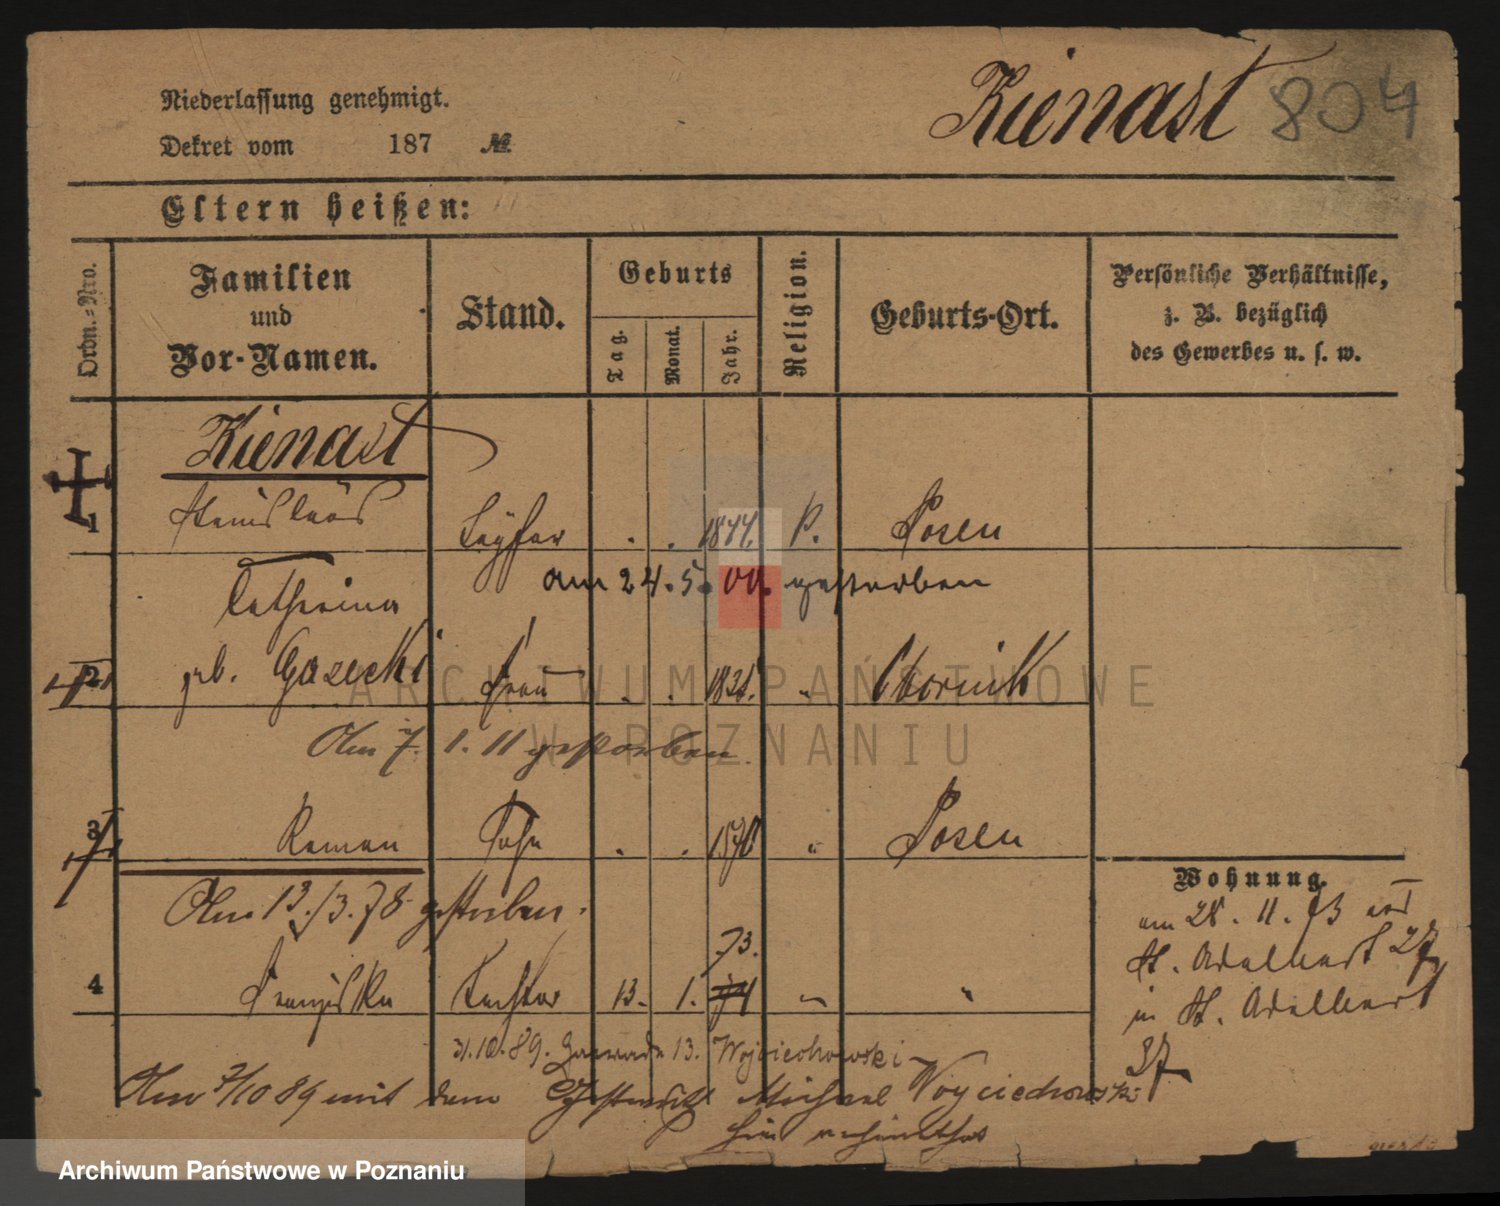 Niederlassung genehmigt.
Kienast 804
Dekret vom 187 №
Eltern heißen:
Ordn.=Nro.
Familien
und
Vor-Namen.
Stand.
Geburts
Tag.
Monat.
Jahr.
Religion.
Geburts-Ort.
Persönliche Verhältnisse,
z. B. bezüglich
des Gewerbes u. s. w.
Kienast
1 Stanislaus . . 1844. Posen
am 24.5.00. gestorben
Catharina
2 geb. Gazecki Frau . . Obornik
Am 7. 1. 11 gestorben
3 Roman Sohn . . " Posen
Wohnung.
Am 13./3.78 gestorben.
am 28. 11. 73
St. Adalbert 27
73.
4 Franziska Tochter 13. 1. 71 " "
in St. Adalbert
37
31.10.89. 13. Wojciechowski
Am 7/10 89 mit dem Michael Woyciechowski
hier
ARCHIWUM PAŃSTWOWE
W POZNANIU
Archiwum Państwowe w Poznaniu